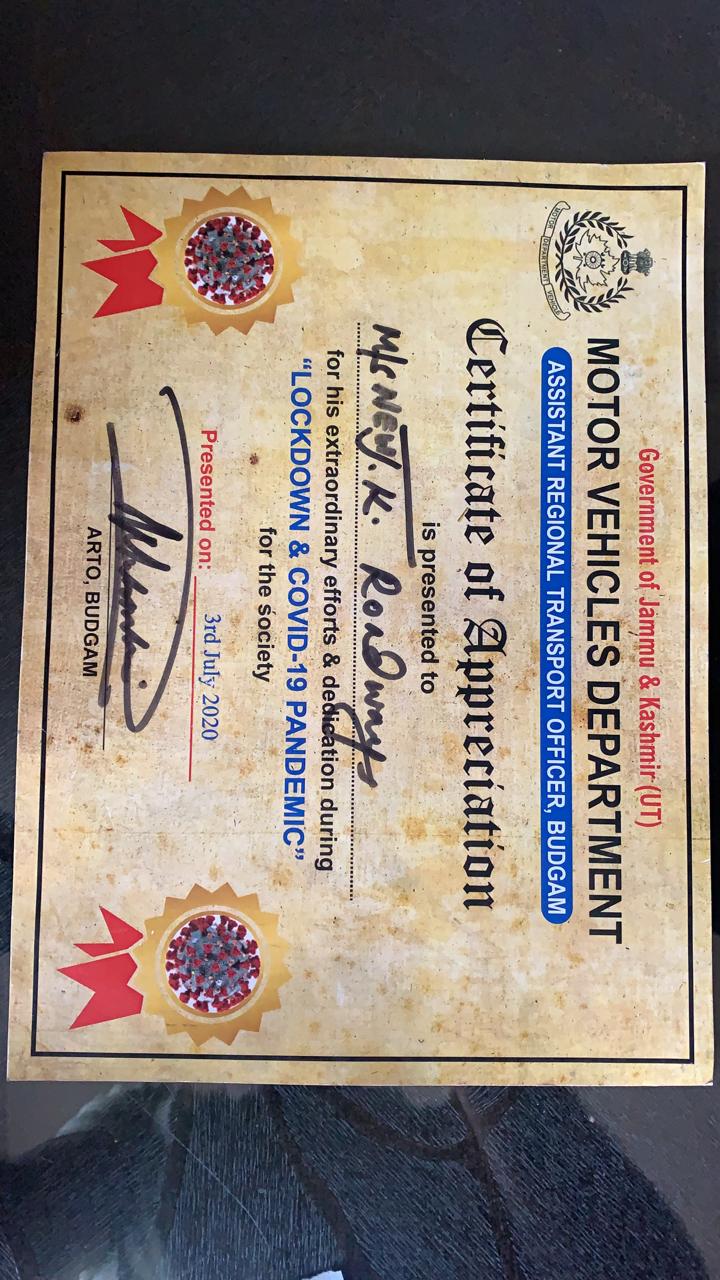 Government of Jammu & Kashmir (UT)
MOTOR VEHICLES DEPARTMENT
ASSISTANT REGIONAL TRANSPORT OFFICER, BUDGAM
MOTOR DEPARTMENT VEHICLE
Certificate of Appreciation
is presented to
M/s NEW. K. Roadways
for his extraordinary efforts & dedication during
“LOCKDOWN & COVID-19 PANDEMIC”
for the society
Presented on: 3rd July 2020
ARTO, BUDGAM